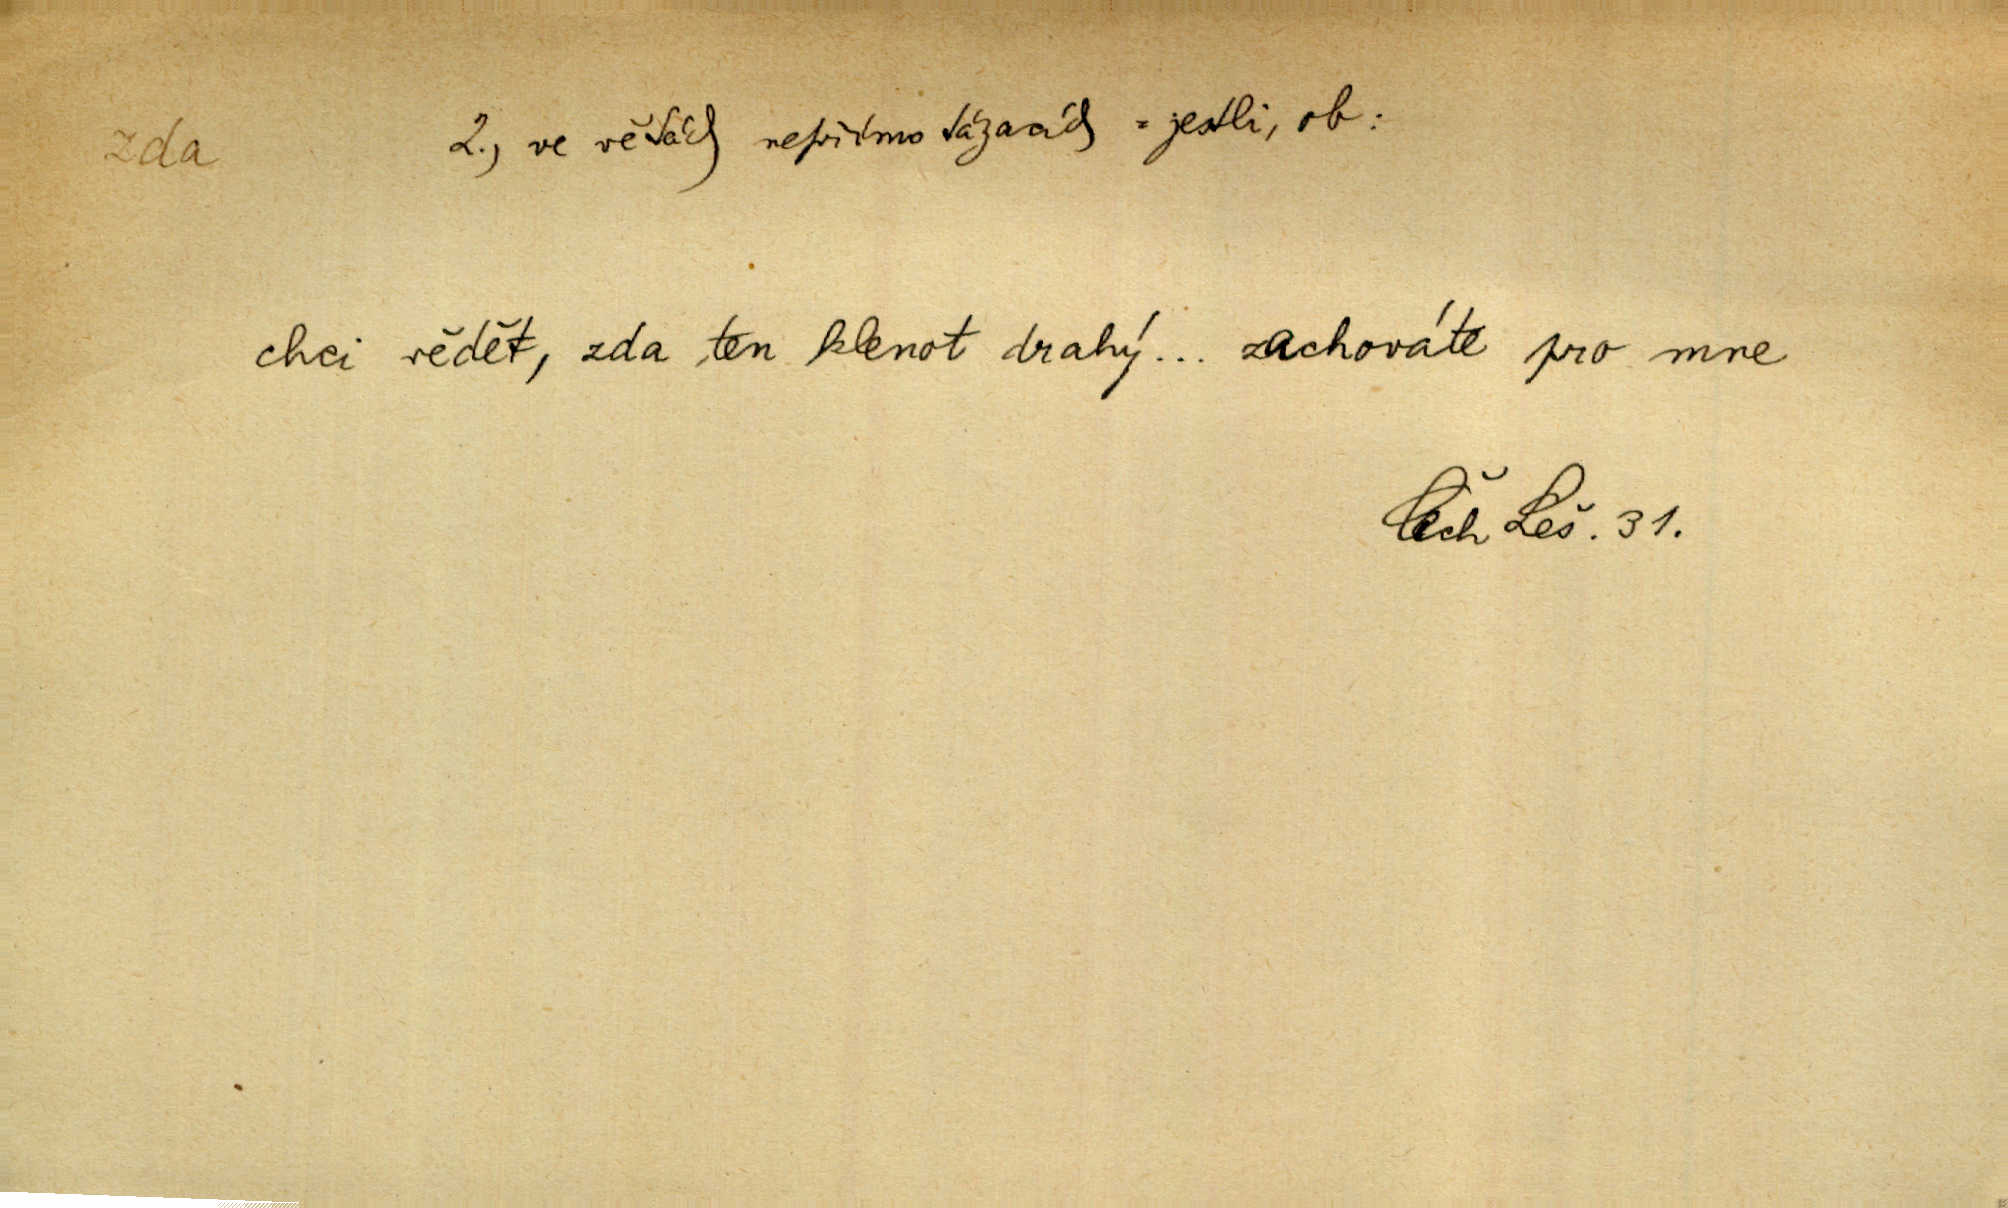 zda 2., ve větách nepřímo tázacích = jestli, ob:
chci vědět, zda ten klenot drahý... zachováte pro mne
Čech Leš. 31.